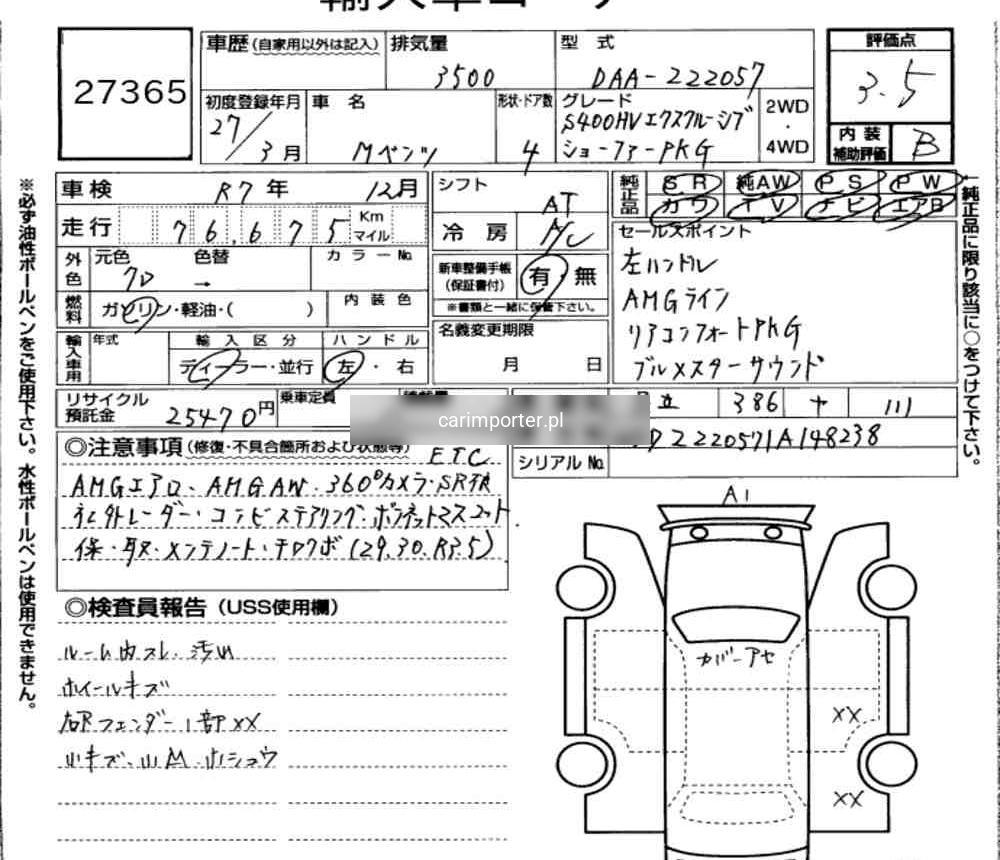 輸入車コーナー
27365
車歴(自家用以外は記入)
排気量
3500
型式
DAA-222057
評価点
3.5
初度登録年月
27/3月
車名
Mベンツ
形状・ドア数
4
グレード
S400HVエクスクルーシブ
ショーファーPKG
2WD
・
4WD
内装
補助評価
B
車検
R7年 12月
シフト
AT
純正品
SR 純AW PS PW
カワ TV ナビ エアB
走行
76,675
Km
マイル
冷房
A/C
セールスポイント
左ハンドル
AMGライン
リアコンフォートPKG
ブルメスターサウンド
外色
元色
クロ
→
色替
カラーNo.
新車整備手帳
(保証書付)
有 無
※書類と一緒に保管下さい。
燃料
ガソリン・軽油・( )
内装色
名義変更期限
月 日
輸入車用
年式
輸入区分
ディーラー・並行
ハンドル
左・右
リサイクル
預託金
25470円
乗車定員
386 + 111
carimporter.pl
D2220571A148238
シリアルNo.
◎注意事項(修復・不具合箇所および状態等)
ETC
AMGエアロ、AMGAW、360°カメラ・SR不良
社外レーダー・コンビステアリング・ボンネットマスコット
保・取・メンテノート・テロクボ(29.30.R3.5)
◎検査員報告(USS使用欄)
ルーム内スレ・汚れ
ホイールキズ
右Rフェンダー1部XX
小キズ・小M・小ショウ
A1
カバーアセ
XX
XX
※必ず油性ボールペンをご使用下さい。水性ボールペンは使用できません。
純正品に限り該当に○をつけて下さい。